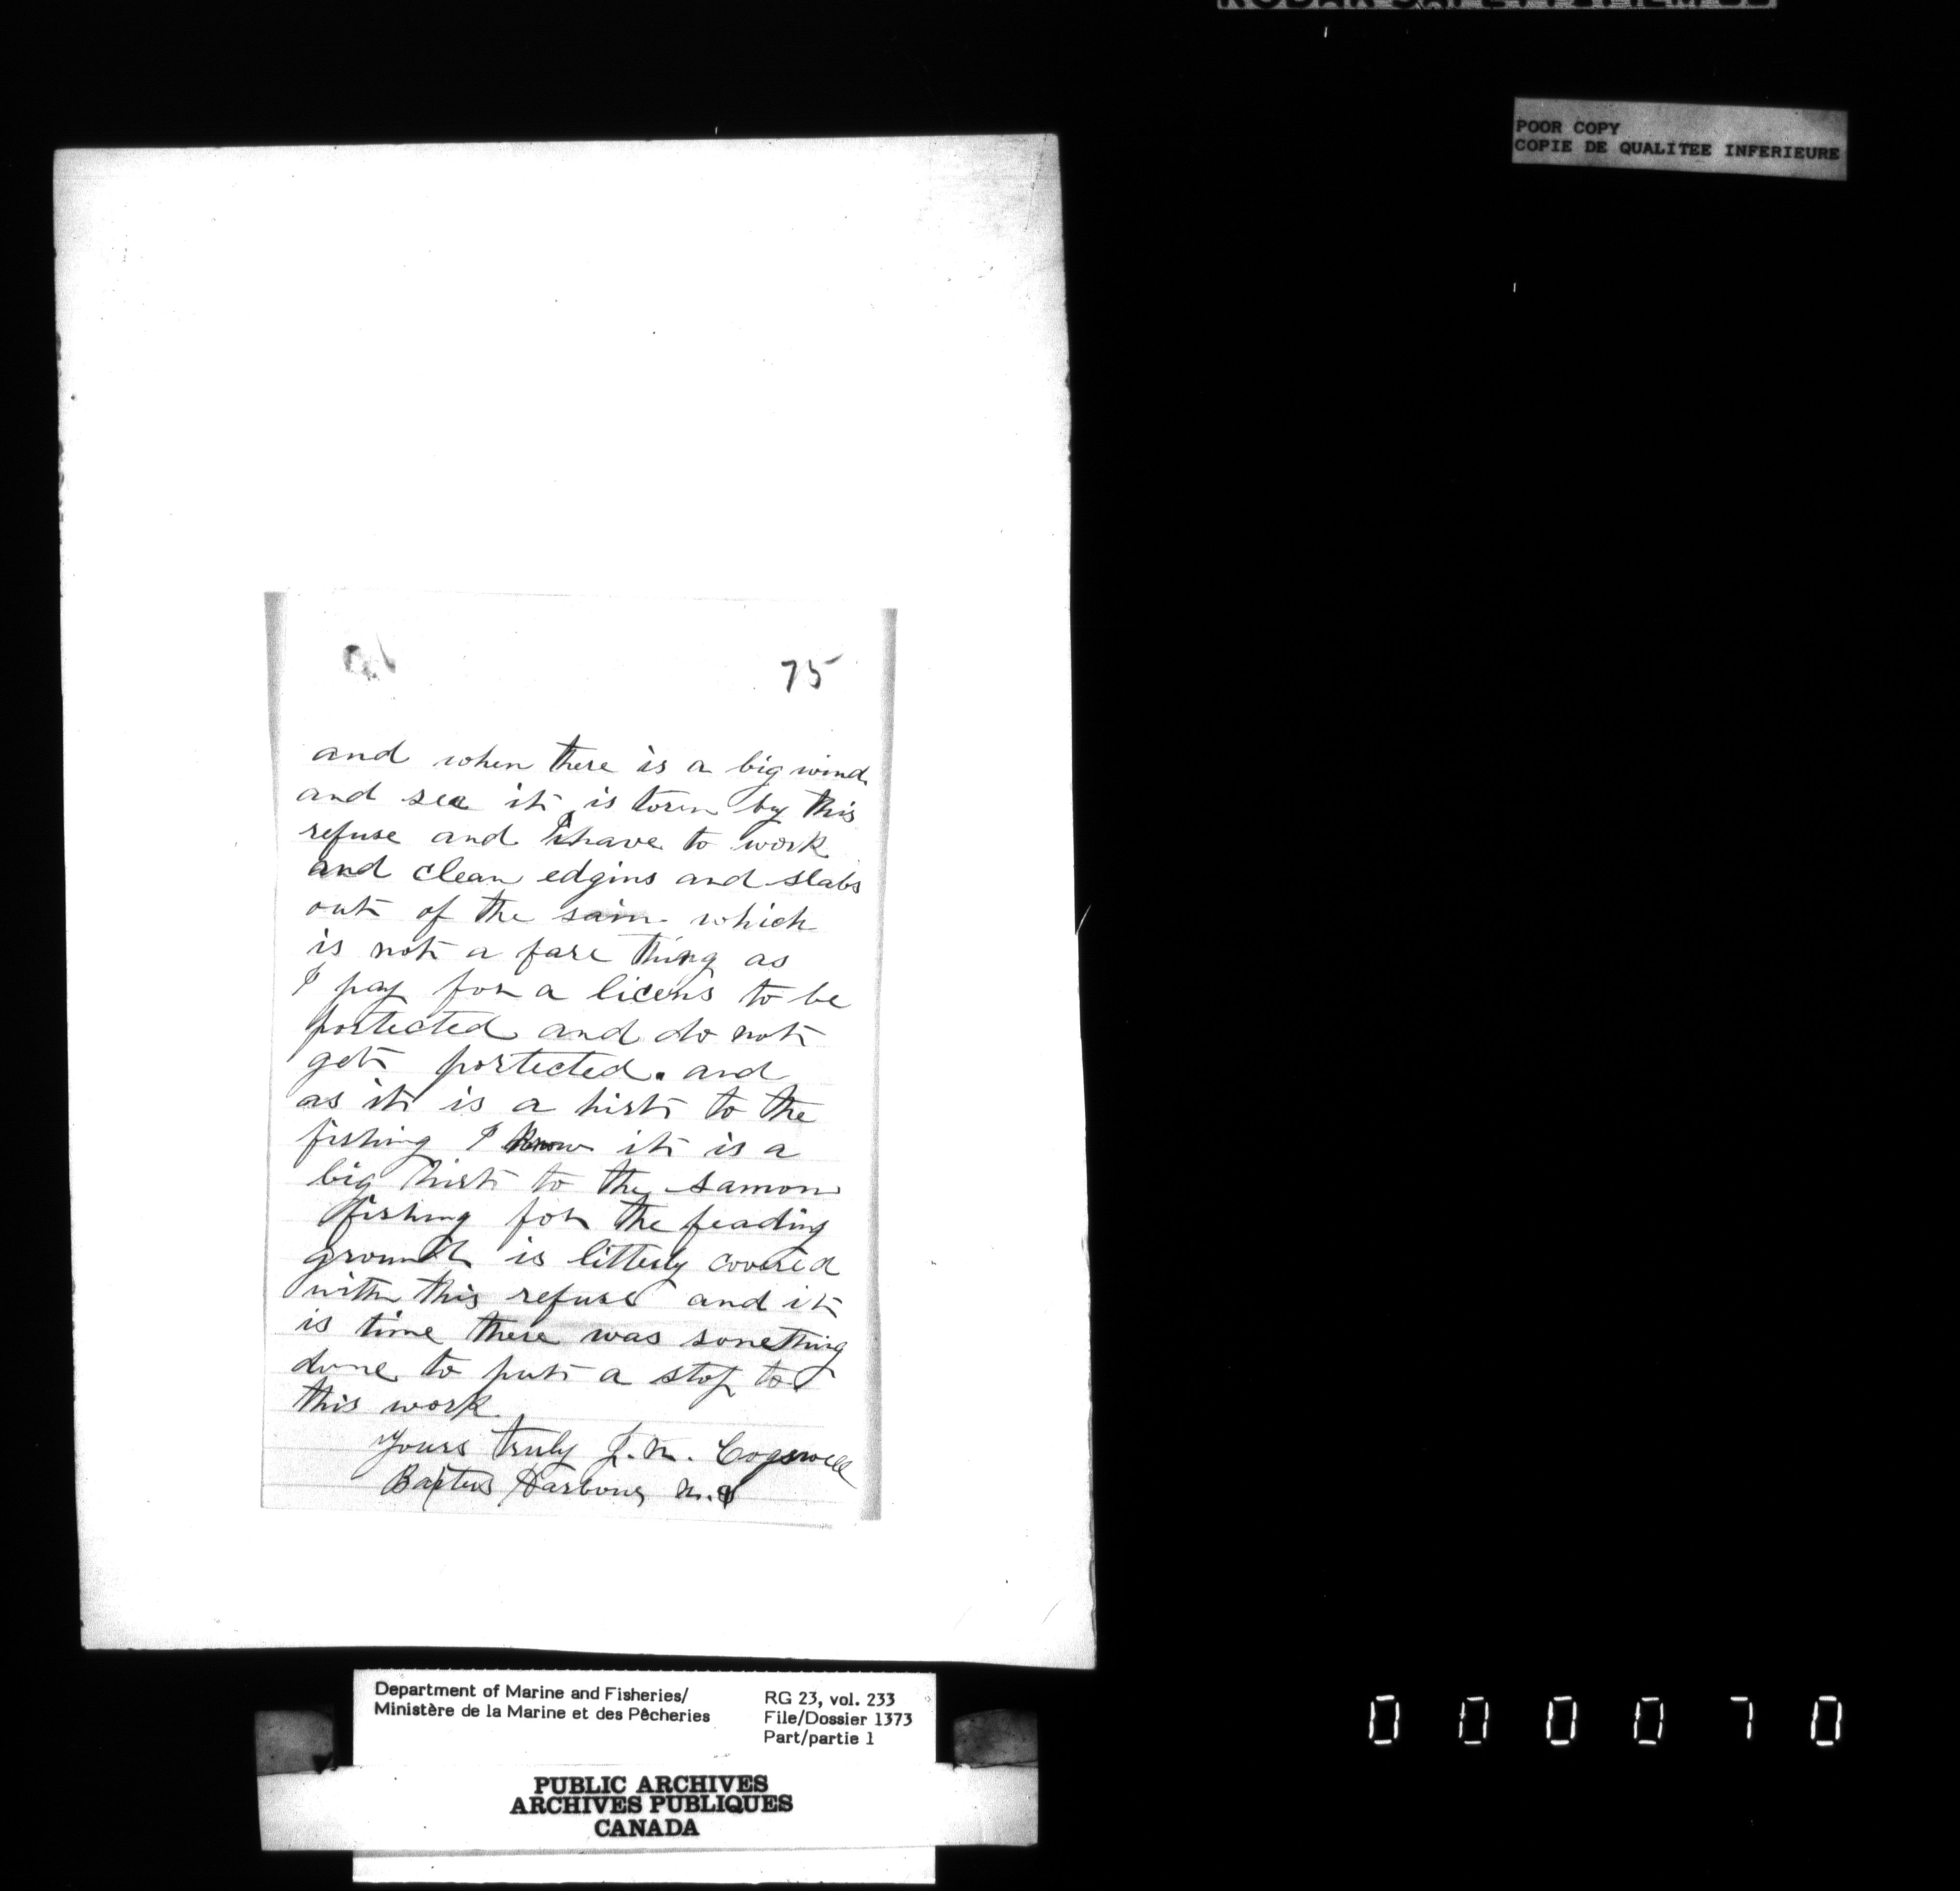 POOR COPY
COPIE DE QUALITEE INFERIEURE
75
and when there is a big wind
and sea it is toren by this
refuse and I have to work
and clean edgins and slabs
out of the saim which
is not a fare thing as
I pay for a licens to be
portected and do not
get portected. and
as it is a hirt to the
fishing I know it is a
big hirt to the samon
fishing for the feading
ground is litterly covered
with this refuse and it
is time there was something
done to put a stop to
this work.
Yours truly J. N. Cogswell
Baxters Harbour N.S
Department of Marine and Fisheries/
Ministère de la Marine et des Pêcheries
RG 23, vol. 233
File/Dossier 1373
Part/partie 1
PUBLIC ARCHIVES
ARCHIVES PUBLIQUES
CANADA
000070